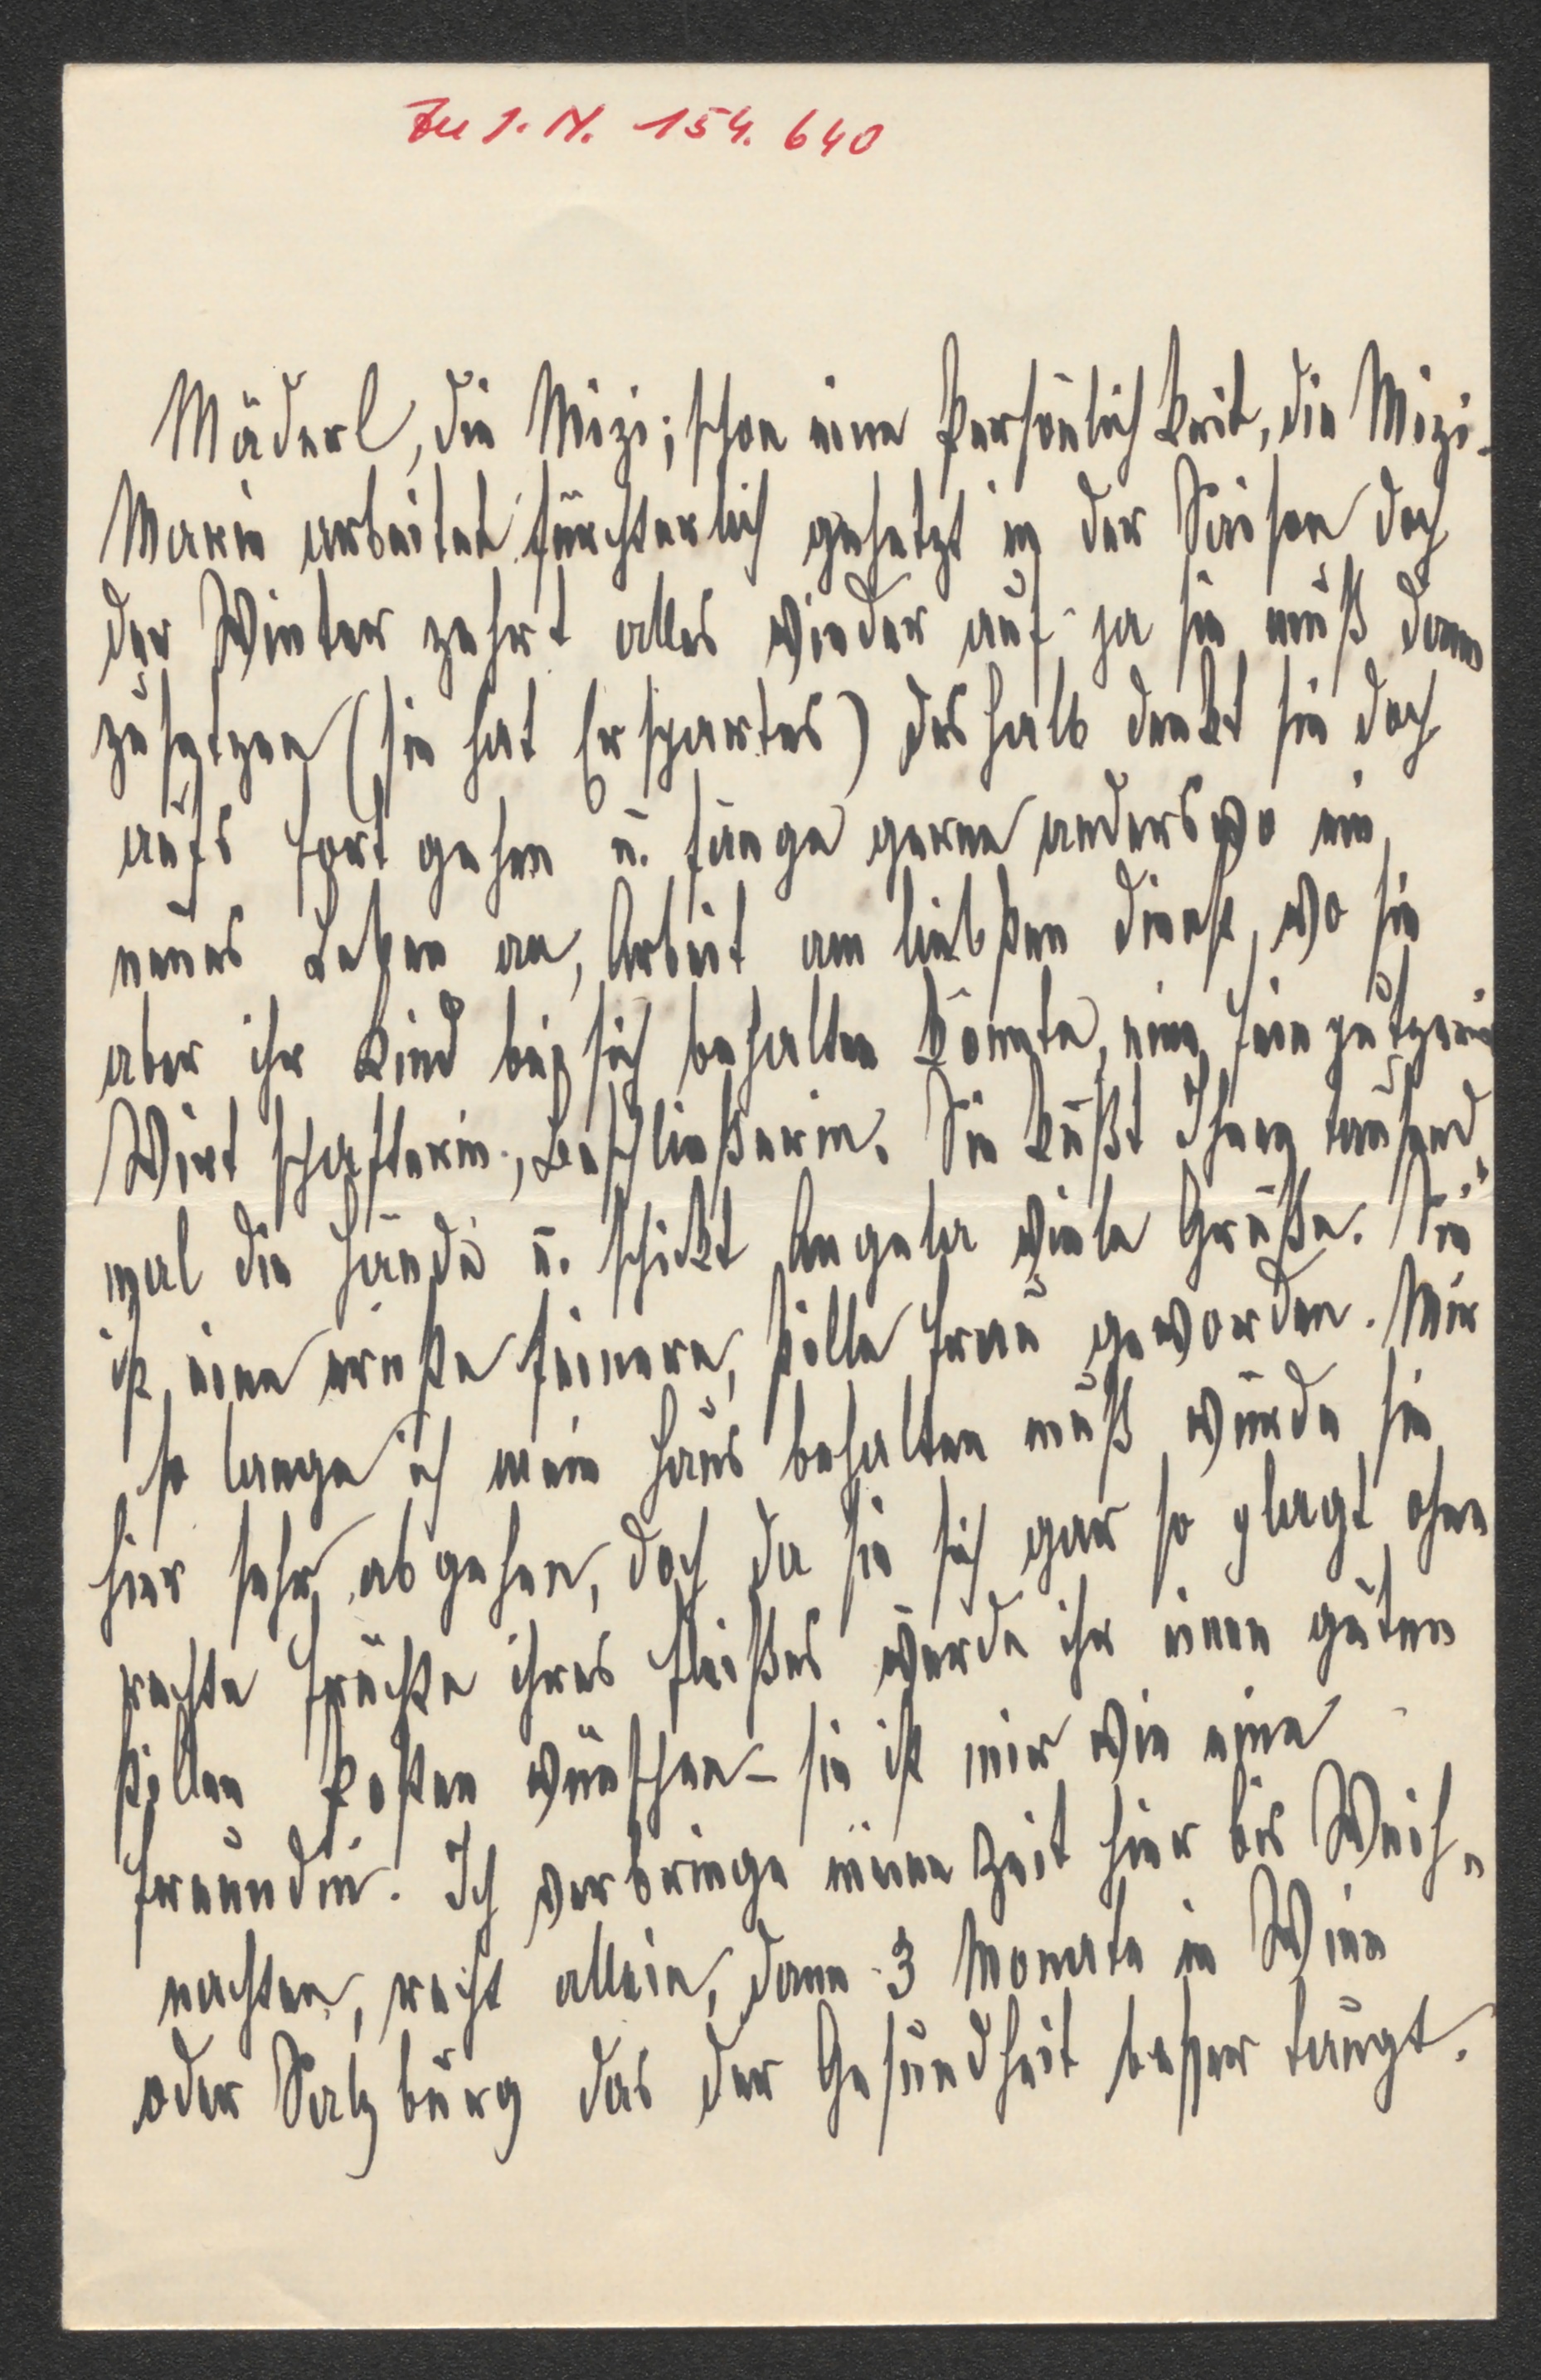 Zu I. N. 154.640
Mäderl, die Mizi; schon eine Persönlichkeit, die Mizi.
Marie arbeitet fürchterlich gehetzt in der Saison doch
der Winter zehrt alles wieder auf ja sie muß dann
zusetzen (sie hat Erspartes) deshalb denkt sie doch
aufs fort gehen u. fange gerne anderswo ein
neues Leben an, Arbeit am liebsten Dienst, wo sie
aber ihr Kind bei sich behalten könnte, eine
Wirtschafterin, Beschließerin. Sie küßt Ihnen tausend
mal die Hände u. schickt Angela viele Grüße. Sie
ist eine ernste feinere, stille Frau geworden. Mir
so lange ich mein Haus behalten muß würde sie
hier sehr abgehen, doch da sie sich gar so plagt ohne
rechte Früchte ihres Fleißes würde ihr einen guten
stillen Posten wünschen – sie ist mir wie eine
Freundin. Ich verbringe meine Zeit hier bis Weih-
nachten, recht allein, dann 3 Monate in Wien
oder Salzburg das der Gesundheit besser taugt.